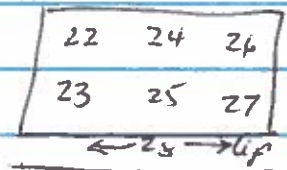 22 24 26
23 25 27
← 25 →